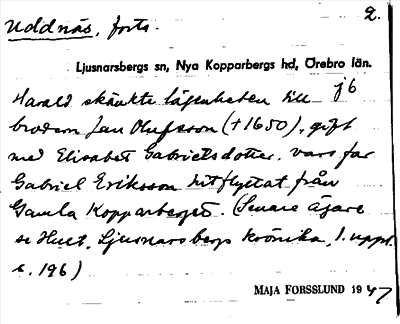 Uddnäs, forts. 2.
Ljusnarsbergs sn, Nya Kopparbergs hd, Örebro län.
Harald skänkte lägenheten till jb
brodern Jan Olufsson (†1650), gift
med Elisabet Gabrielsdotter, vars far
Gabriel Eriksson hitflyttat från
Gamla Kopparberget. (Senare ägare
se Hult, Ljusnarsbergs krönika, 1. uppl.
s. 196)
MAJA FORSSLUND 1947